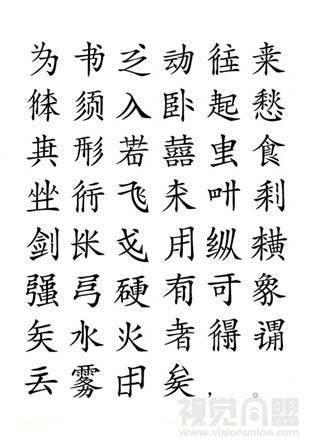 为书之动往来
体须入卧起愁
其形若囍虫食
坐行飞木叶利
剑长戈月纵横
强弓硬有可象
矢水火者得谓
云雾日矣，。
视觉同盟
www.visionunion.com